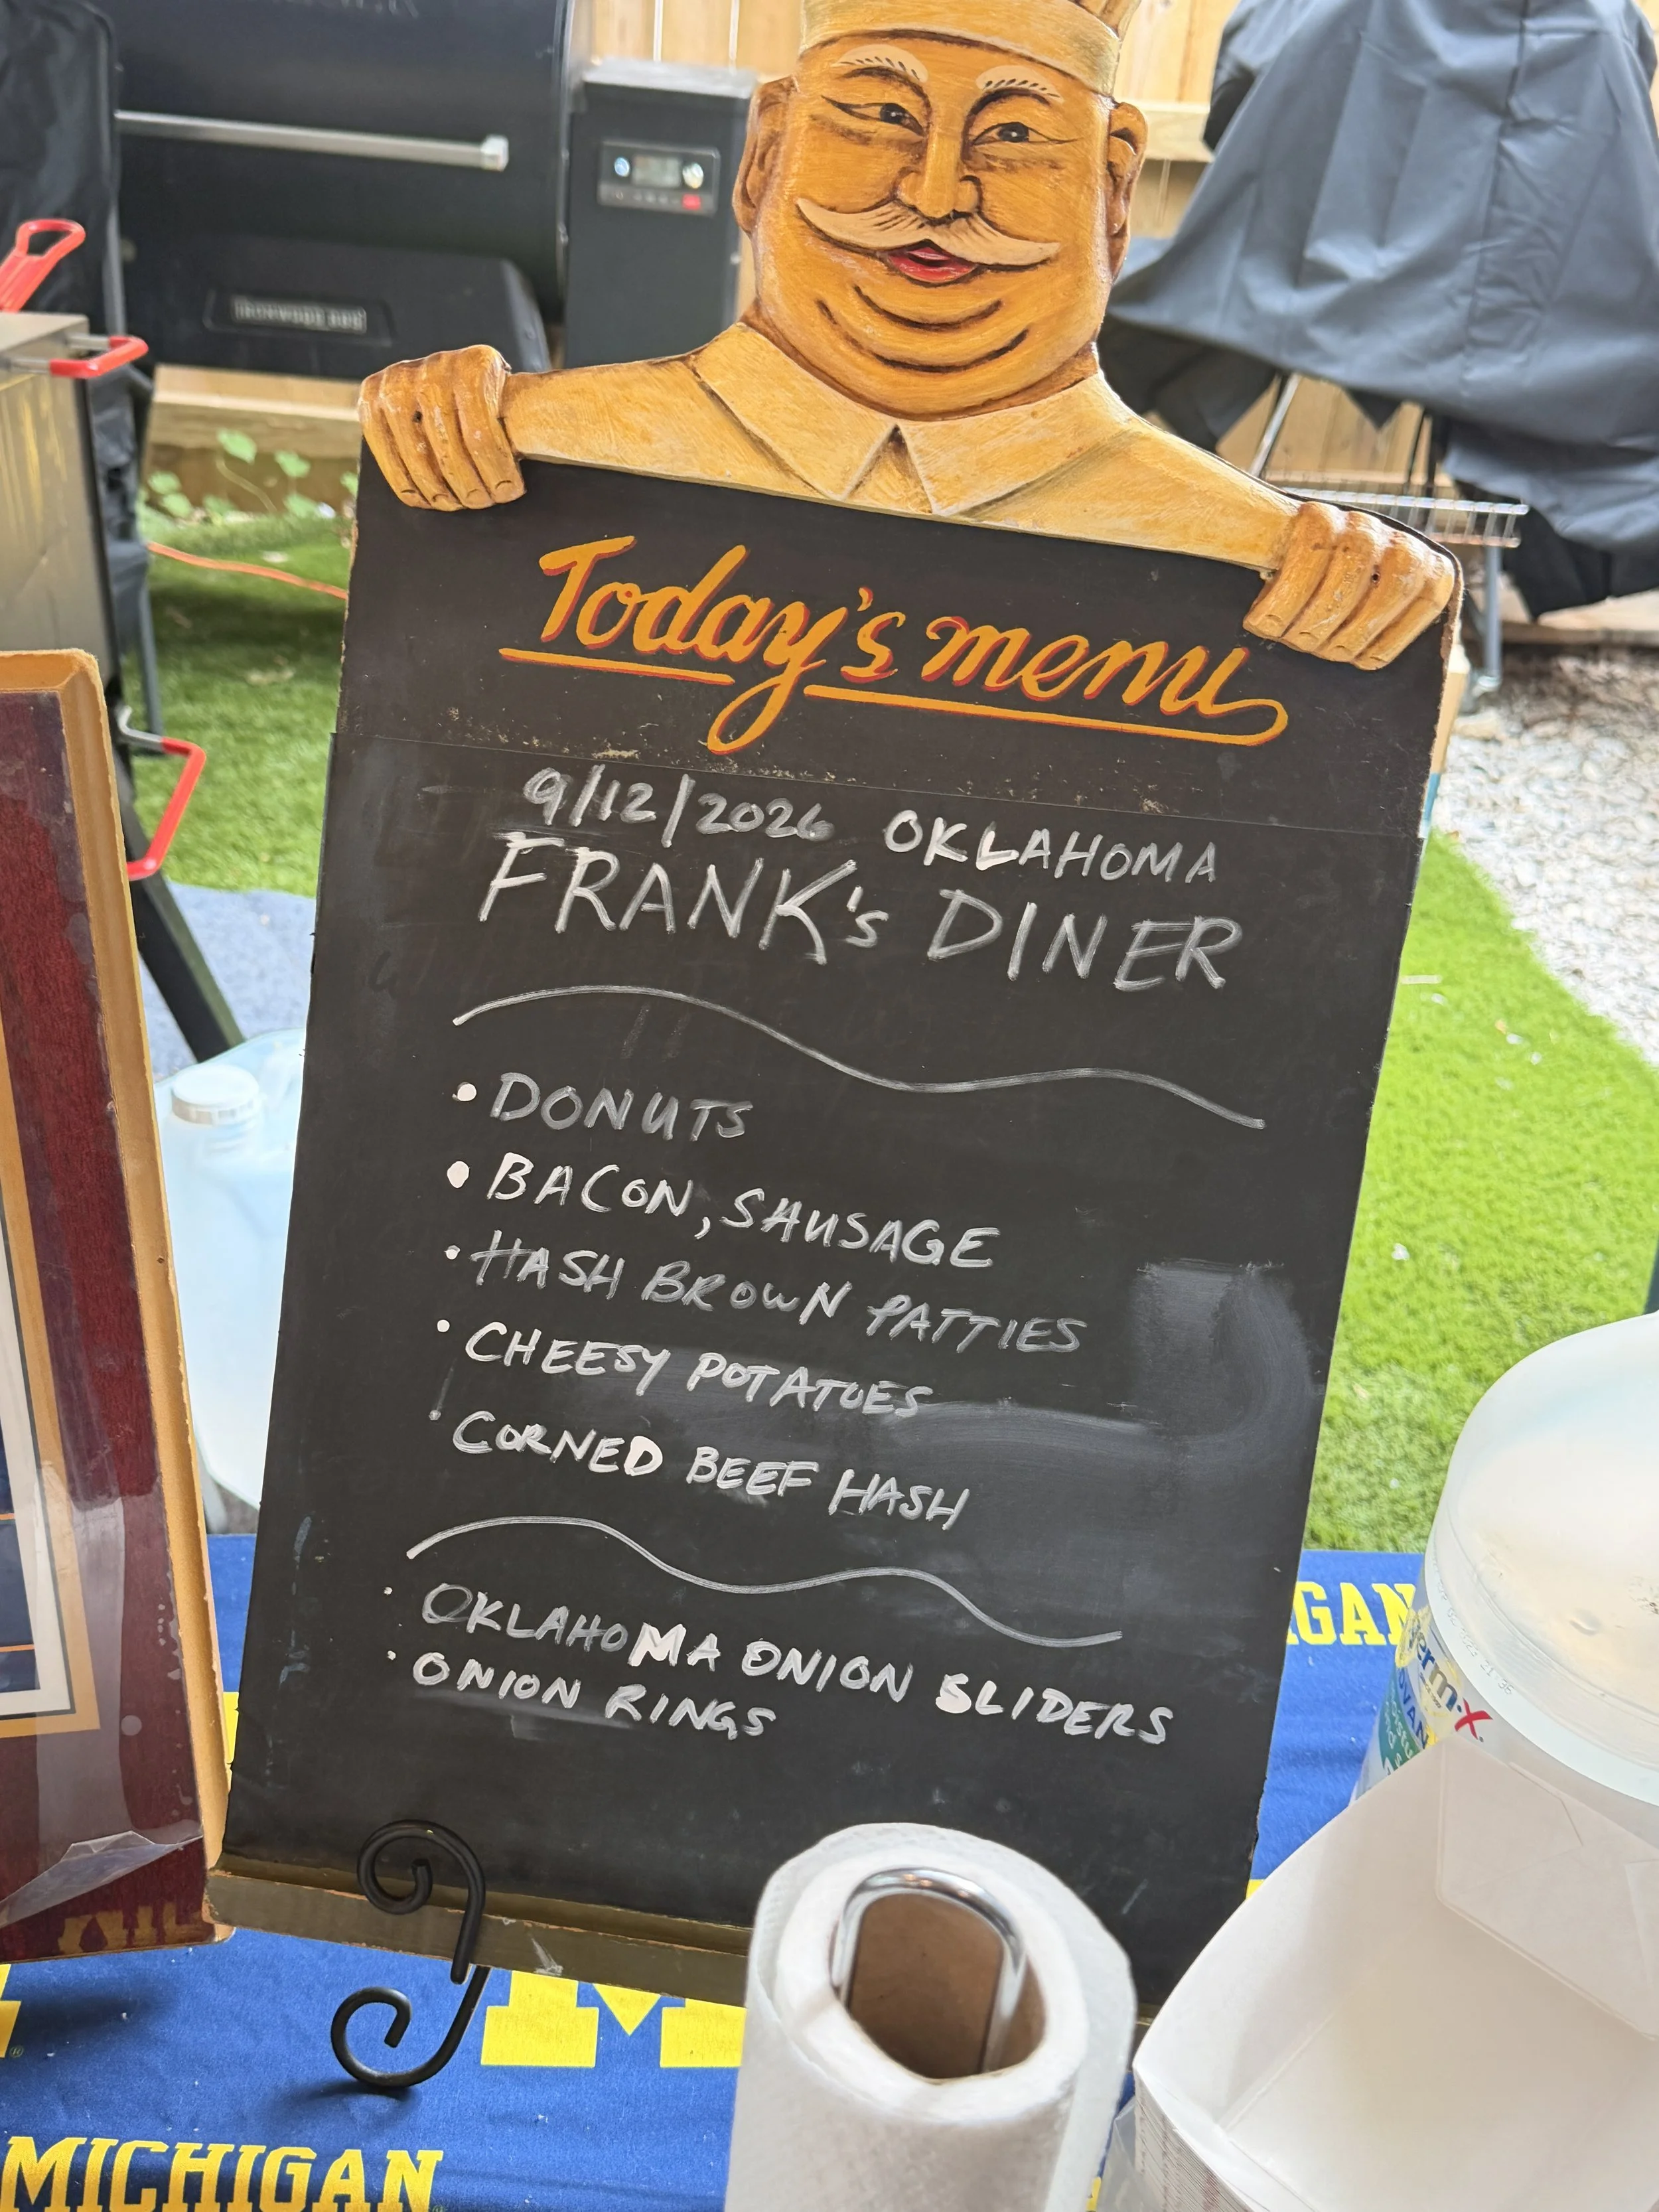 IRONWOOD 885
Today's menu
9/12/2026 OKLAHOMA
FRANK's DINER
• DONUTS
• BACON, SAUSAGE
• HASH BROWN PATTIES
• CHEESY POTATOES
• CORNED BEEF HASH
• OKLAHOMA ONION SLIDERS
• ONION RINGS
IGAN
germ-X
ADVAN
M
MICHIGAN